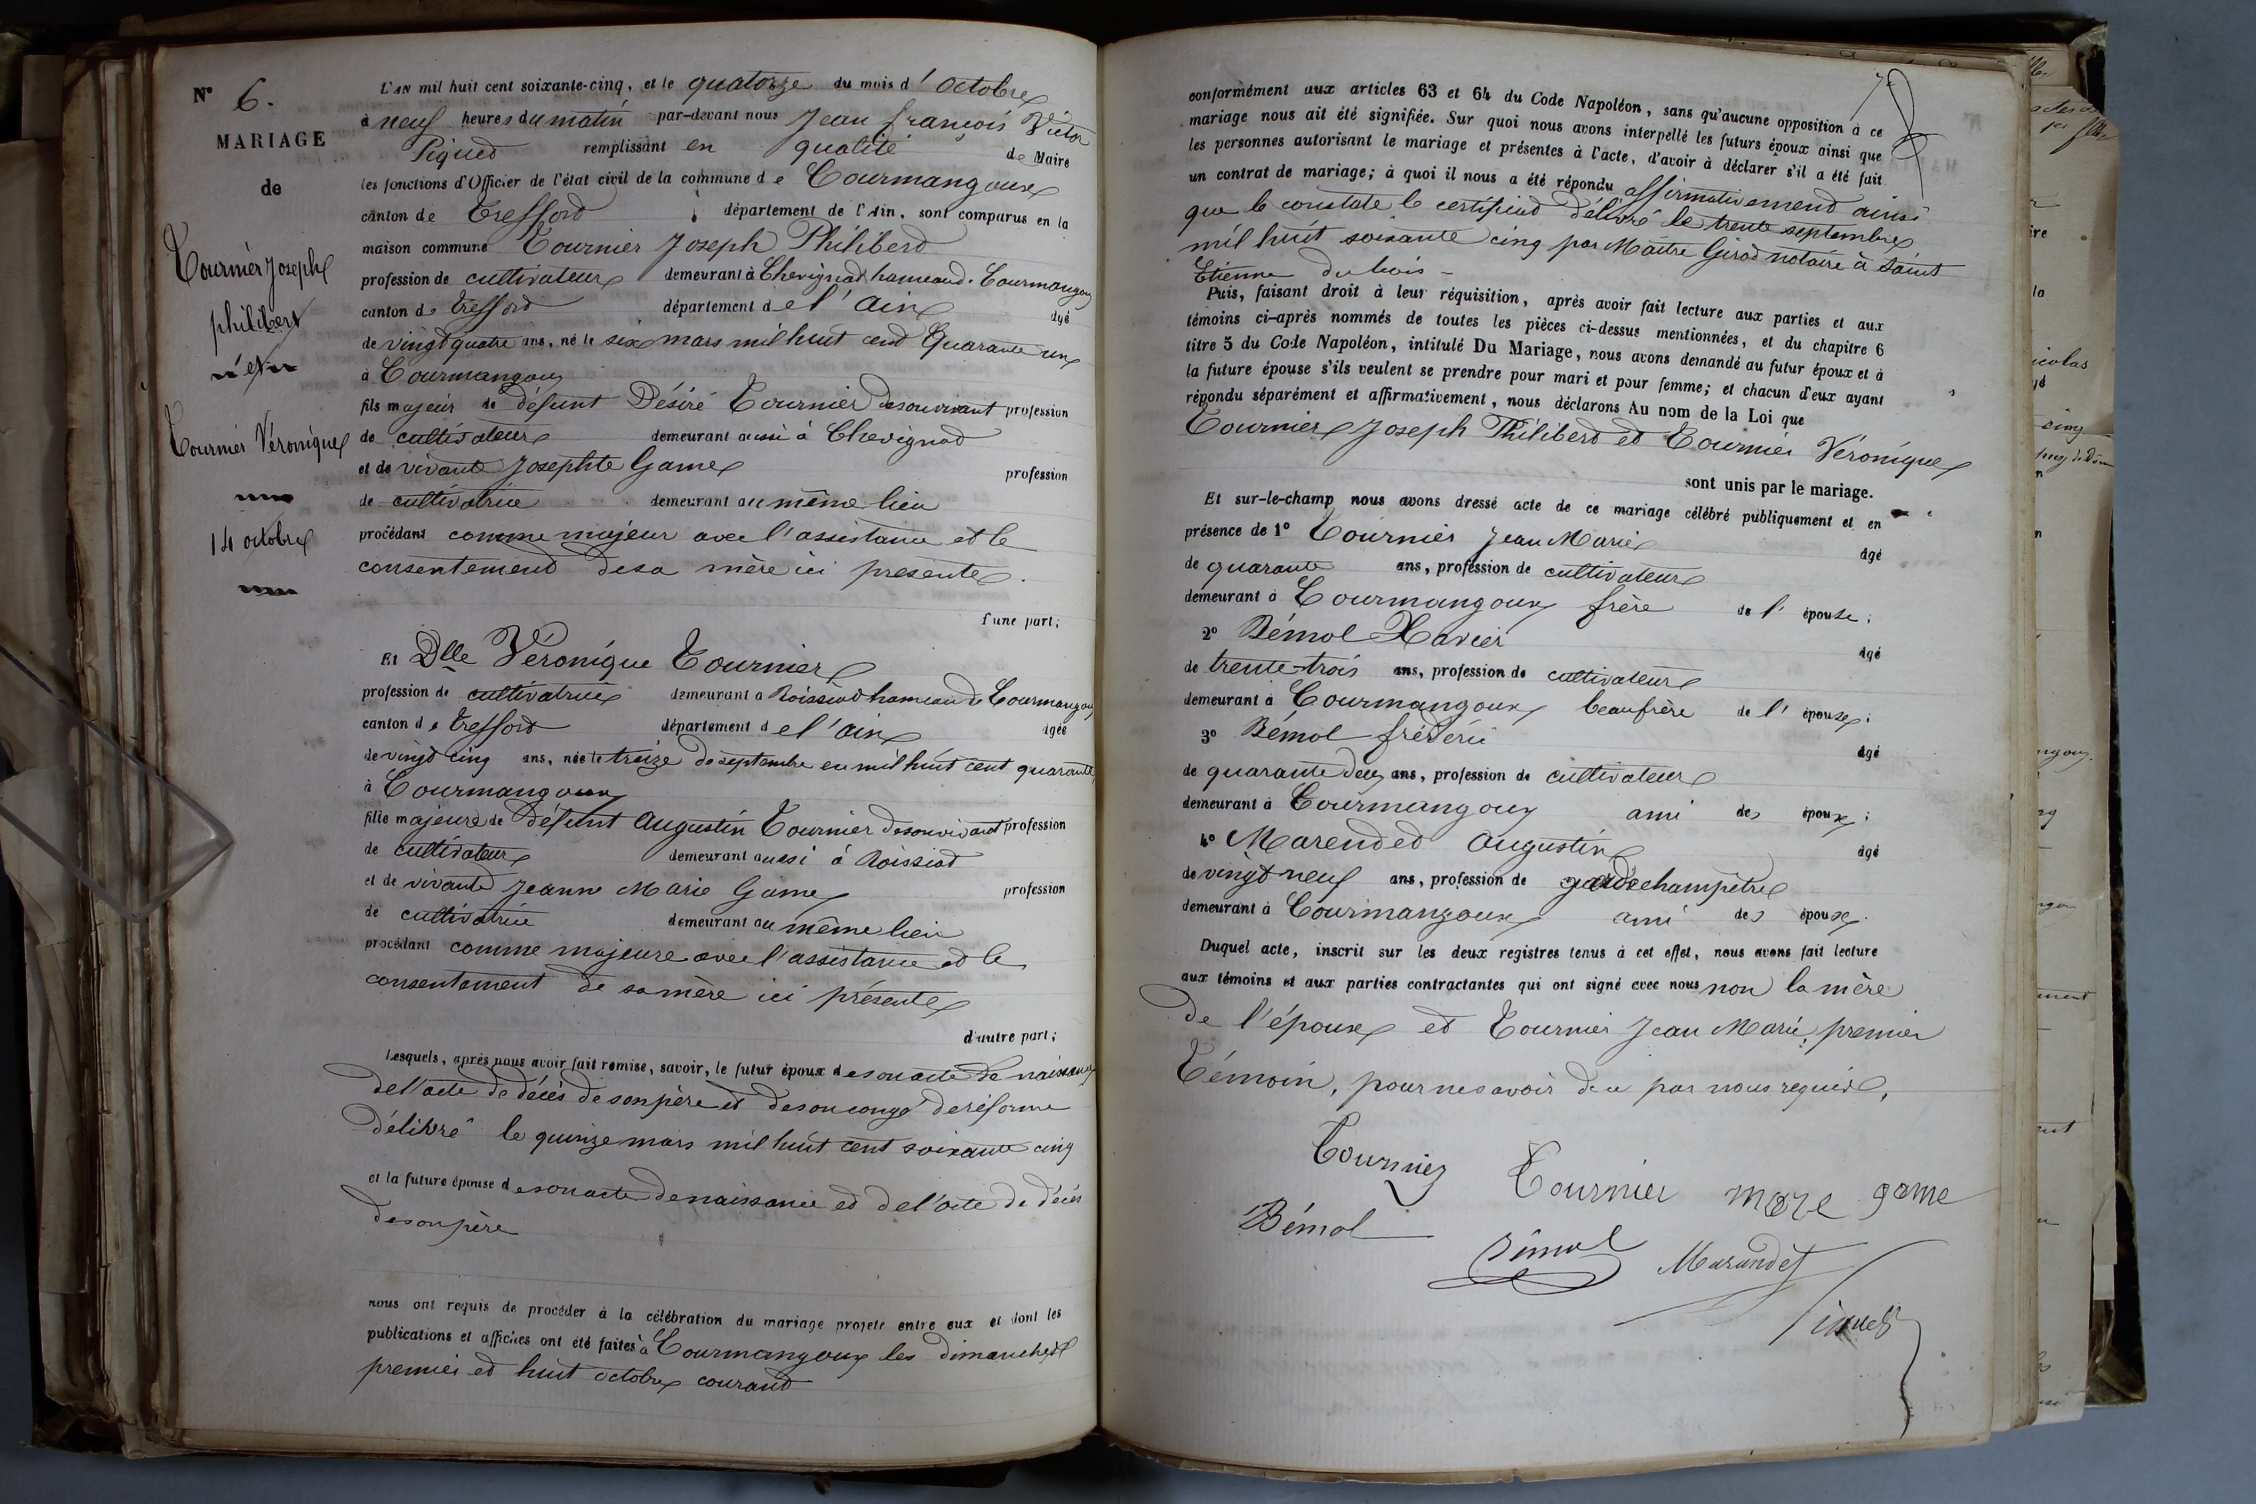 N° 6.
MARIAGE
de
Tournier Joseph
philibert
n'et n
Tournier Véronique
14 octobre
L'AN mil huit cent soixante-cinq, et le quatorze du mois d'octobre
à neuf heures du matin par-devant nous Jean françois Victor
Piqued remplissant en qualité de Maire
les fonctions d'Officier de l'état civil de la commune de Courmangoux
canton de Trefford département de l'Ain, sont comparus en la
maison commune Tournier Joseph Philiberd
profession de cultivateur demeurant à Chevignad hameau d. Courmangoux
canton de Trefford département de l'ain âgé
de vingt quatre ans, né le six mars mil huit cend Quarante un
à Courmangoux
fils majeur de défunt Désiré Tournier de son vivant profession
de cultivateur demeurant aussi à Chevignad
et de vivante Josephte Game profession
de cultivatrice demeurant au même lieu
procédant comme majeur avec l'assistance et le
consentemend de sa mère ici présente.
d'une part;
Et Dlle Véronique Tournier
profession de cultivatrice demeurant à Roissiad hameau de Courmangoux
canton de Trefford département de l'ain âgée
de vingt cinq ans, née le treize de septembre en mil huit cent quarante
à Courmangoux
fille majeure de défunt Augustin Tournier de son vivant profession
de cultivateur demeurant aussi à Roissiad
et de vivante Jeanne Marie Game profession
de cultivatrice demeurant au même lieu
procédant comme majeure avec l'assistance ed le
consentement de sa mère ici présente
d'autre part;
Lesquels, après nous avoir fait remise, savoir, le futur époux de son acte de naissance
de l'acte de décès de son père et de son congé de réforme
délivré le quinze mars mil huit cent soixante cinq
et la future épouse de son acte de naissance ed de l'acte de décès
de son père
nous ont requis de procéder à la célébration du mariage projeté entre eux et dont les
publications et affiches ont été faites à Courmangoux les dimanches
premier ed huit octobre courand
conformément aux articles 63 et 64 du Code Napoléon, sans qu'aucune opposition à ce
mariage nous ait été signifiée. Sur quoi nous avons interpellé les futurs époux ainsi que
les personnes autorisant le mariage et présentes à l'acte, d'avoir à déclarer s'il a été fait
un contrat de mariage; à quoi il nous a été répondu affirmativemend ainsi
que le constate le certificad délivré le trente septembre
mil huit soixante cinq par Maître Girod notaire à Saint
Etienne du bois
Puis, faisant droit à leur réquisition, après avoir fait lecture aux parties et aux
témoins ci-après nommés de toutes les pièces ci-dessus mentionnées, et du chapitre 6
titre 5 du Code Napoléon, intitulé Du Mariage, nous avons demandé au futur époux et à
la future épouse s'ils veulent se prendre pour mari et pour femme; et chacun d'eux ayant
répondu séparément et affirmativement, nous déclarons Au nom de la Loi que
Tournier Joseph Philiberd ed Tournier Véronique
sont unis par le mariage.
Et sur-le-champ nous avons dressé acte de ce mariage célébré publiquement et en
présence de 1° Tournier Jean Marie âgé
de quarante ans, profession de cultivateur
demeurant à Courmangoux frère de l'épouse;
2° Bémol Xavier âgé
de trente-trois ans, profession de cultivateur
demeurant à Courmangoux beaufrère de l'épouse;
3° Bémol fréderic âgé
de quarante deux ans, profession de cultivateur
demeurant à Courmangoux ami des époux;
4° Marended Augustin âgé
de vingt neuf ans, profession de garde champêtre
demeurant à Courmangoux ami des époux.
Duquel acte, inscrit sur les deux registres tenus à cet effet, nous avons fait lecture
aux témoins et aux parties contractantes qui ont signé avec nous non la mère
de l'époux ed Tournier Jean Marie, premier
Témoin, pour ne savoir de ce par nous requis.
Tournier Tournier mare game
Bémol Bémol Marandet
Piqued